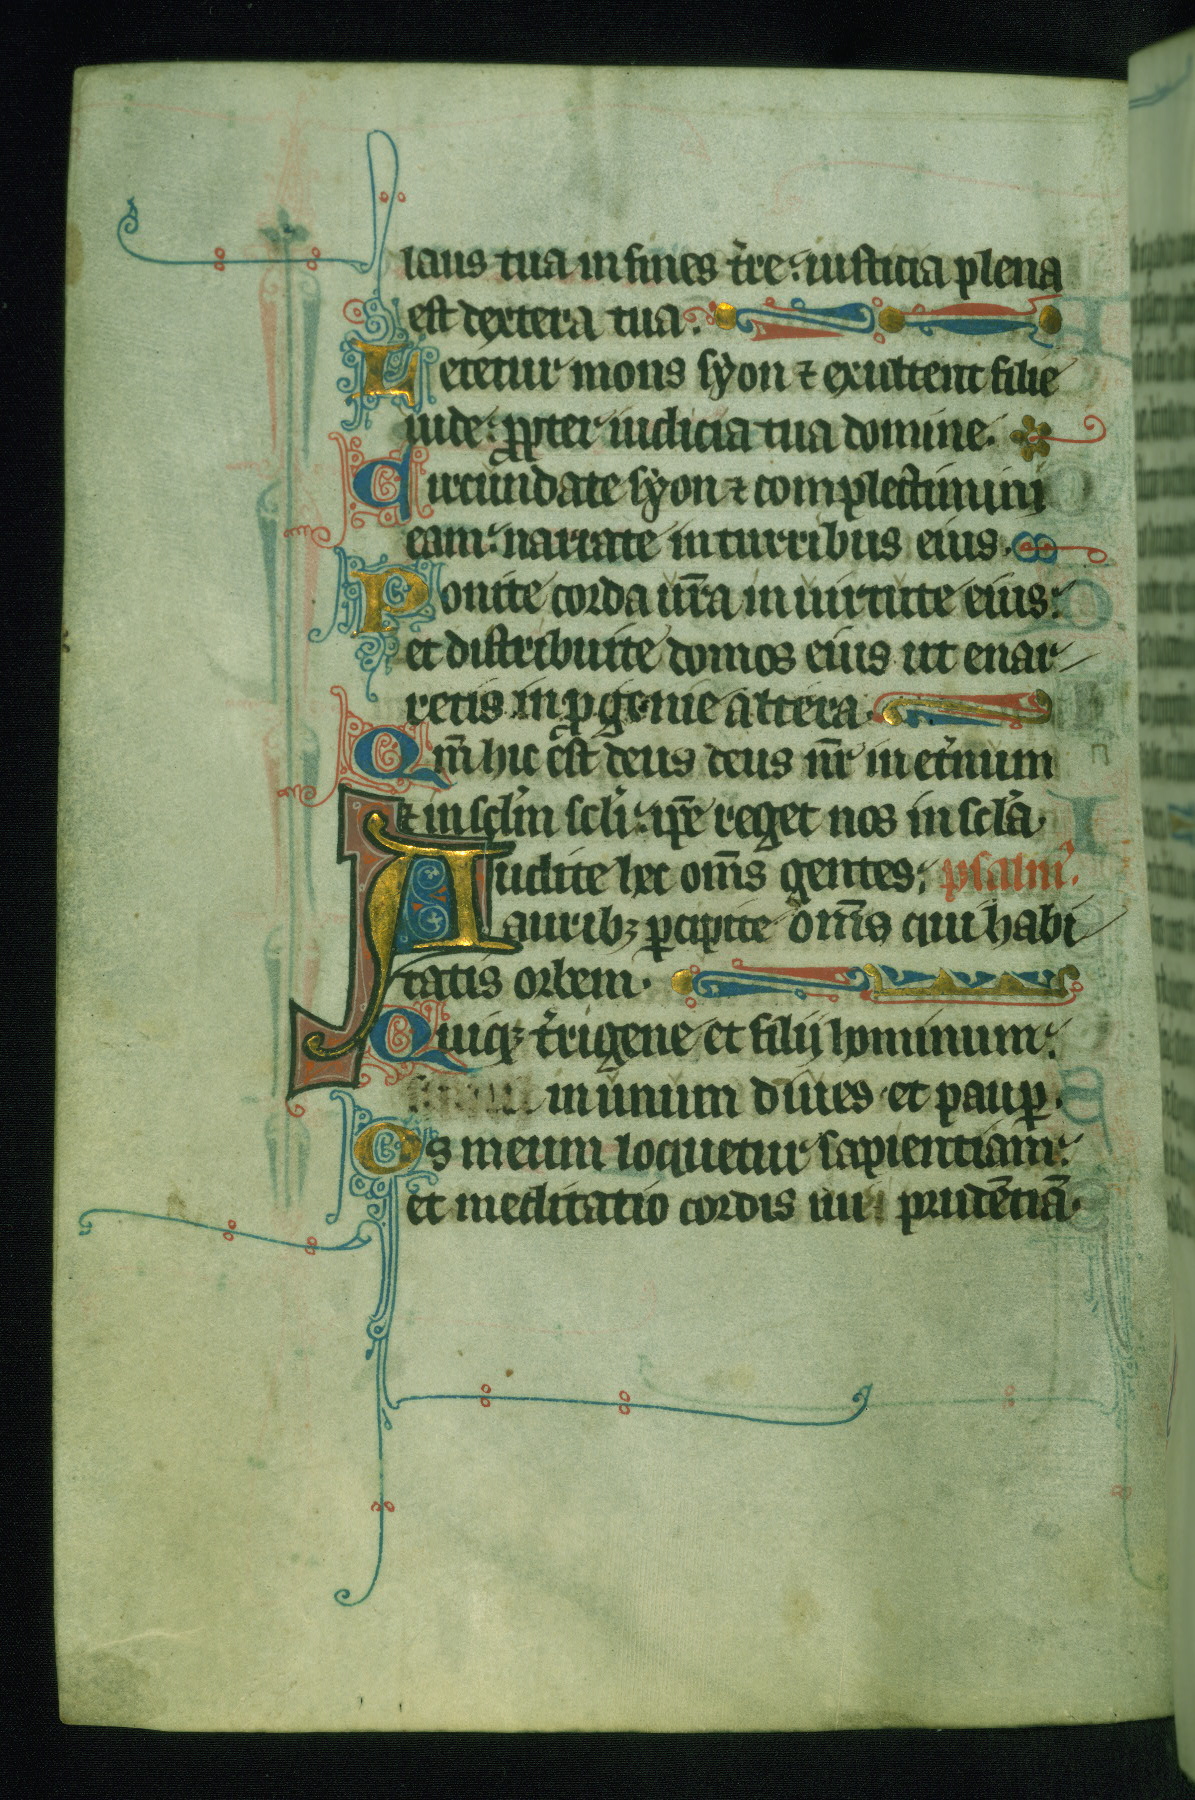 laus tua in fines t̉re: iusticia plena
est dextera tua.
Letetur mons syon ⁊ exultent filie
iude: ꝓpter iudicia tua domine.
Circundate syon ⁊ complectimini
eam: narrate in turribus eius.
Ponite corda ur̄a in uirtute eius:
et distribuite domos eius ut enar
retis in ꝓgenie altera.
Qm̄ hic est deus deus nr̄ in et̉num
⁊ in sclm̉ sclỉ: ip̄e reget nos in sclả.
Audite hec om̄s gentes: psalm̉.
auribꝫ ꝑcipite om̄s qui habi
tatis orbem.
Quiqꝫ t̉rigene et filij hominum:
in unum diues et paup̱.
Os meum loquetur sapientiam:
et meditatio cordis mei prudētiā.